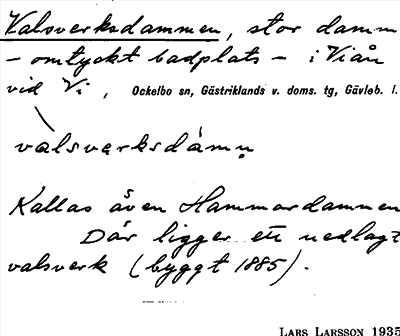 Valsverksdammen, stor damm
- omtyckt badplats - i Viån
vid Vi, Ockelbo sn, Gästriklands v. doms. tg, Gävleb. l.
valsvęrksdámṇ
Kallas även Hammardammen
Där ligger ett nedlagt
valsverk (byggt 1885).
LARS LARSSON 1935